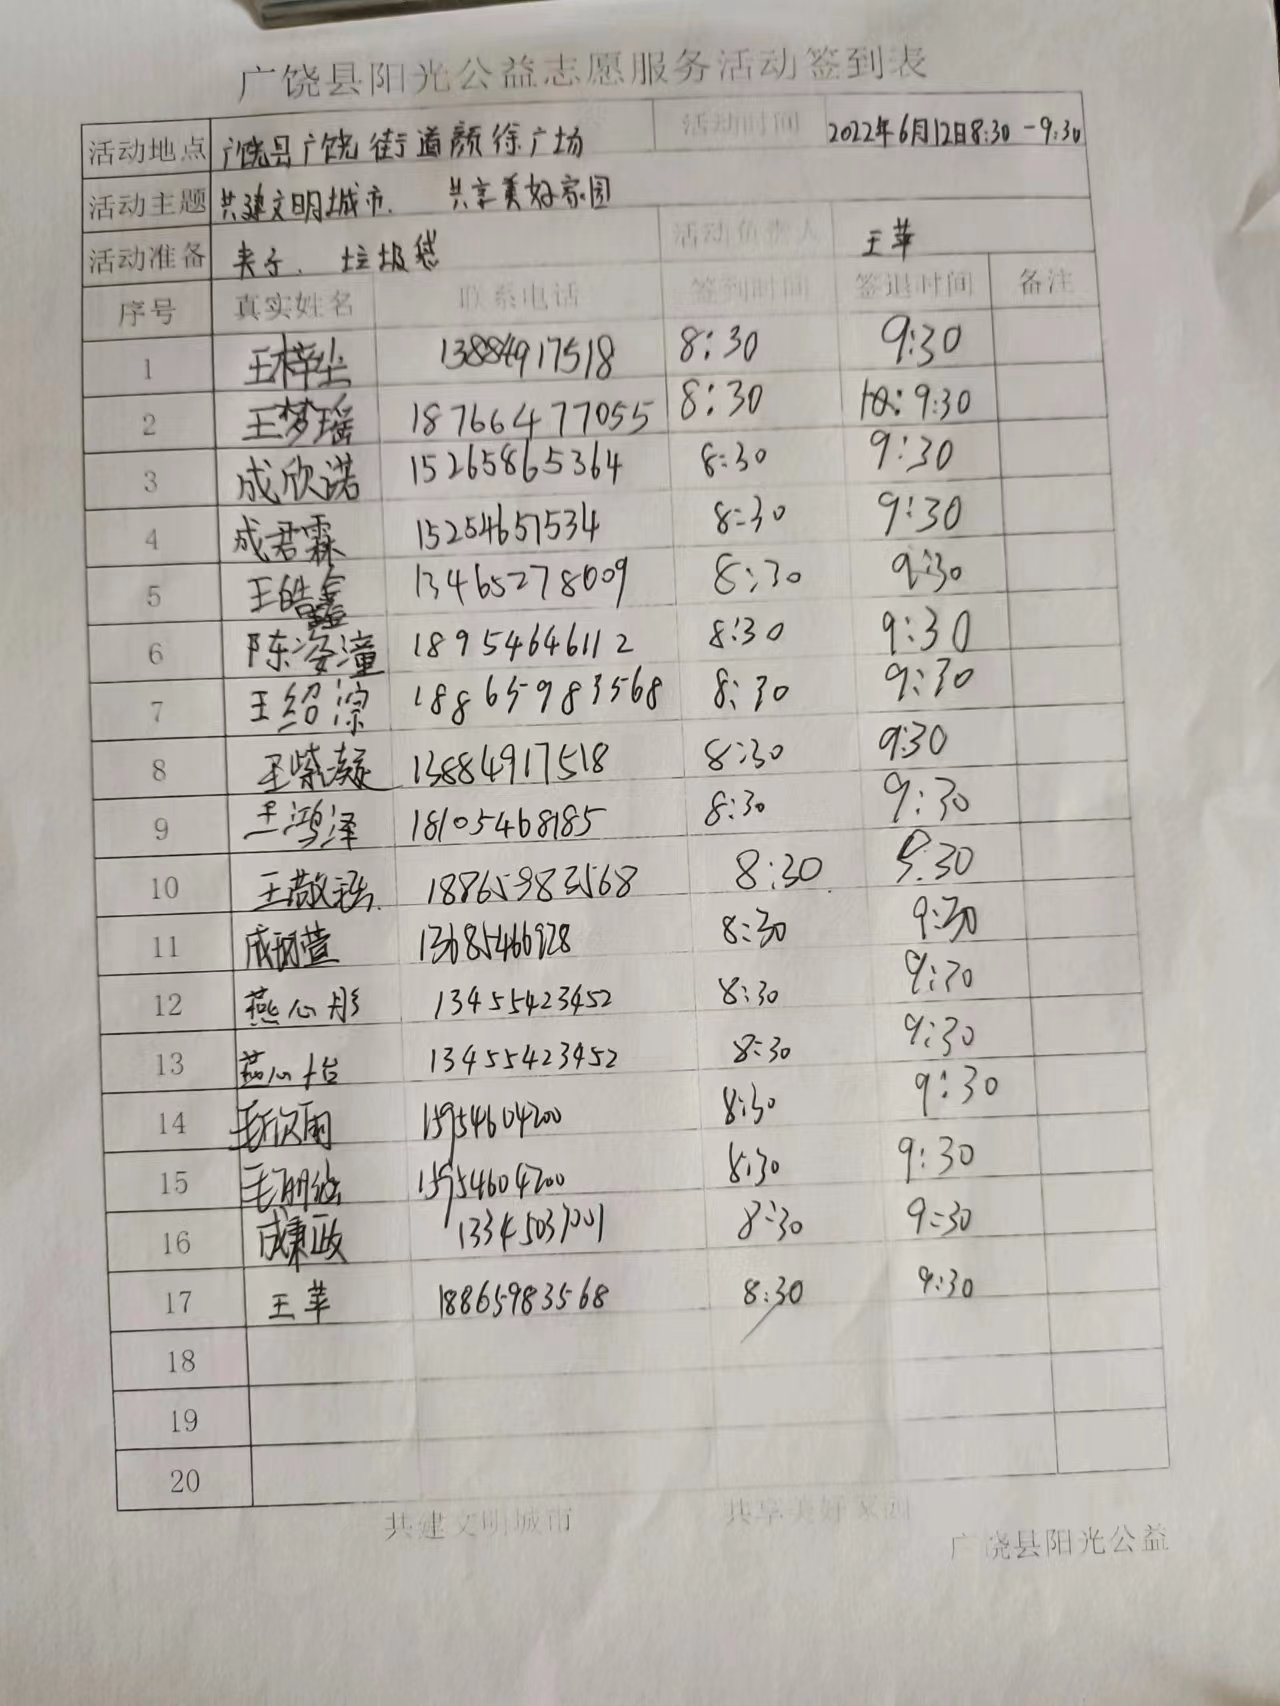 广饶县阳光公益志愿服务活动签到表
活动地点 广饶县广饶街道颜徐广场 活动时间 2022年6月12日8:30-9:30
活动主题 共建文明城市、 共享美好家园
活动准备 夹子、垃圾袋 活动负责人 王苹
序号 真实姓名 联系电话 签到时间 签退时间 备注
1 王梓尘 13884917518 8:30 9:30
2 王梦瑶 18766477055 8:30 9:30
3 成欣诺 15265865364 8:30 9:30
4 成君霖 15254657534 8:30 9:30
5 王皓鑫 13465278009 8:30 9:30
6 陈姿潼 18954646112 8:30 9:30
7 王绍淙 18865983568 8:30 9:30
8 王紫凝 13884917518 8:30 9:30
9 王鸿泽 18105468185 8:30 9:30
10 王敬 18865983568 8:30 9:30
11 成 萱 13685466928 8:30 9:30
12 燕心彤 13455423452 8:30 9:30
13 燕心怡 13455423452 8:30 9:30
14 毛欣雨 15954604200 8:30 9:30
15 毛 15954604200 8:30 9:30
16 成秉政 13345037001 8:30 9:30
17 王苹 18865983568 8:30 9:30
18
19
20
共建文明城市 共享美好家园
广饶县阳光公益